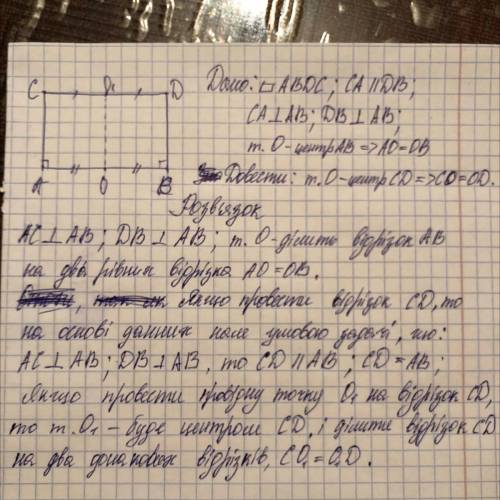 C O₁ D
Дано: □ ABDC; CA ∥ DB;
CA⊥AB; DB⊥AB;
т. O - центр AB => AO=OB
A O B
Довести: т. O - центр CD => CO=OD.
Розв'язок
AC⊥AB; DB⊥AB; т. O - ділить відрізок AB
на два рівних відрізка AO=OB.
якщо провести відрізок CD, то
на основі данних умовою задачі, що:
AC⊥AB; DB⊥AB, то CD∥AB; CD=AB;
Якщо провести точку O₁ на відрізок CD,
то т. O₁ - буде центром CD, і ділити відрізок CD
на два відрізків, CO₁=O₁D.